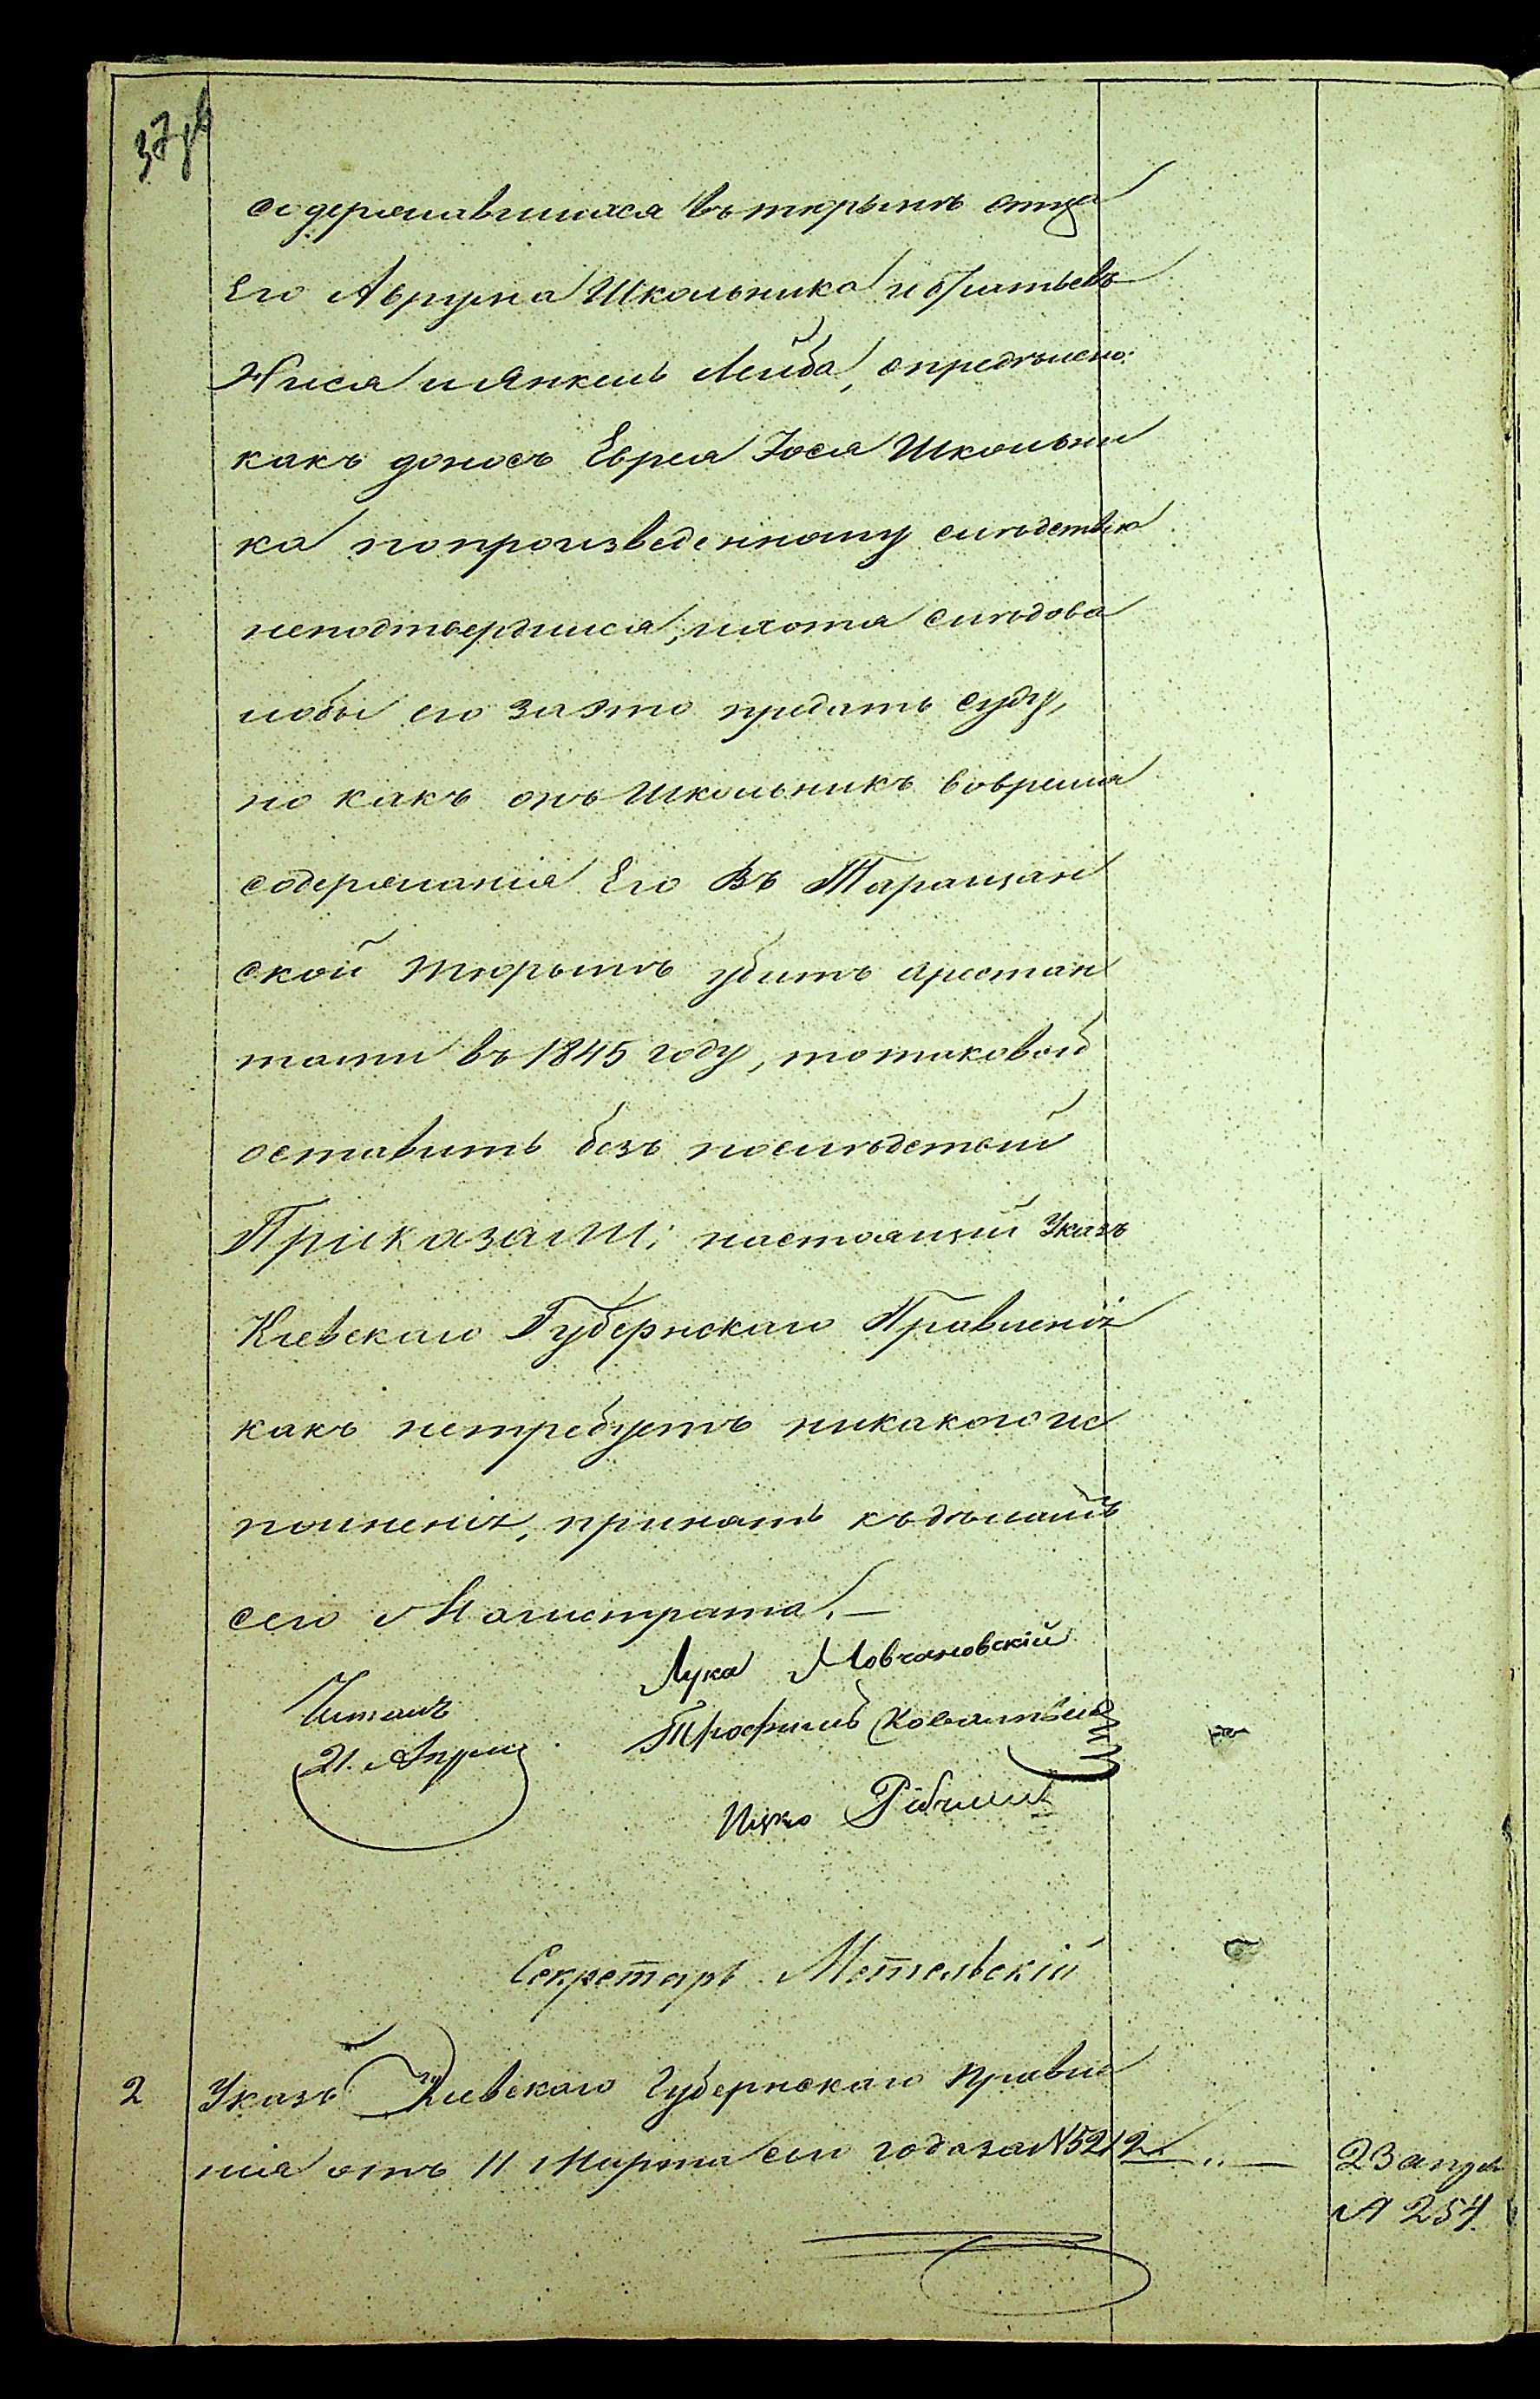 37об
содержавшихся въ тюрьмѣ отца
Его Аврума Школьника и братьевъ
Нися и Янкель Лейба, опредѣлено:
какъ доносъ Еврея Іося Школьни
ка по произведенному слѣдствію
неподтвердился, и хотя слѣдова
лобы его за это предать суду,
но какъ онъ Школьникъ вовремя
содержанія Его въ Таращан
ской тюрьмѣ убитъ арестан
тами въ 1845 году, то таковой
оставить безъ послѣдствій
Приказали: настоящій Указъ
Кіевскаго Губернскаго Правленія
какъ нетребуетъ никакого ис
полненія, принять къ дѣламъ
сего Магистрата. —
Лука Мовчановскій
Читалъ
Трофимъ
21. Апреля
Ицко
Секретарь Метельскій
2 Указъ Кіевскаго Губернскаго Правле
нія отъ 11 Марта сего года за № 5212 — " —
23 апреля
№ 254